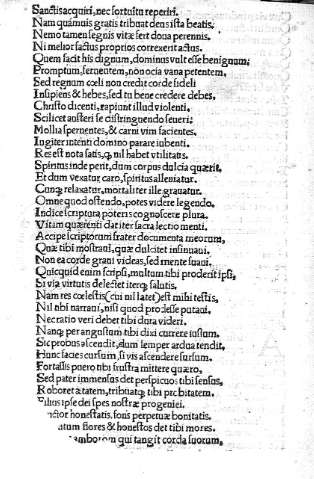 Sanctis acquiri, nec fortuitu reperiri.
Nam quamuis gratis tribuat deus ista beatis,
Nemo tamen segnis vitæ fert dona perennis.
Ni melior factus proprios correxerit actus.
Quem facit his dignum, dominus vult esse benignum;
Promptum, feruentem, non ocia vana petentem.
Sed regnum cœli non credit corde fideli
Insipiens & hebes, sed tu bene credere debes,
Christo dicenti, rapiunt illud violenti.
Scilicet austeri se distringuendo seueri;
Mollia spernentes, & carni vim facientes.
Iugiter intenti domino parare iubenti.
Res est nota satis, q nil habet vtilitatis.
Spiritus inde perit, dum corpus dulcia quærit,
Et dum vexatur caro, spiritus alleuiatur.
Cunq relaxatur, mortaliter ille grauatur.
Omne quod ostendo, potes videre legendo,
Indice scriptura poteris cognoscere plura.
Vitam quærenti dat iter sacra lectio menti.
Accipe scriptorum frater documenta meorum,
Quæ tibi monstraui, quæ dulciter insinuaui.
Non ea corde graui videas, sed mente suaui.
Quicquid enim scripsi, multum tibi proderit ipsi,
Si via virtutis delectet iterq salutis.
Nam res cœlestis (cui nil latet) est mihi testis,
Nil tibi narraui, nisi quod prodesse putaui,
Nec ratio veri debet tibi dura videri.
Nanq per angustum tibi dixi currere iustum.
Sic probus ascendit, dum semper ardua tendit,
Hunc facies cursum, si vis ascendere sursum.
Forsassis puero tibi frustra mittere quæro,
Sed pater immensus det perspicuos tibi sensus,
Roboret ætatem, tribuatq tibi probitatem.
Filius ipse dei spes nostræ progeniei.
honestatis, fons perpetuæ bonitatis.
flores & honestos det tibi mores.
qui tangit corda suorum,